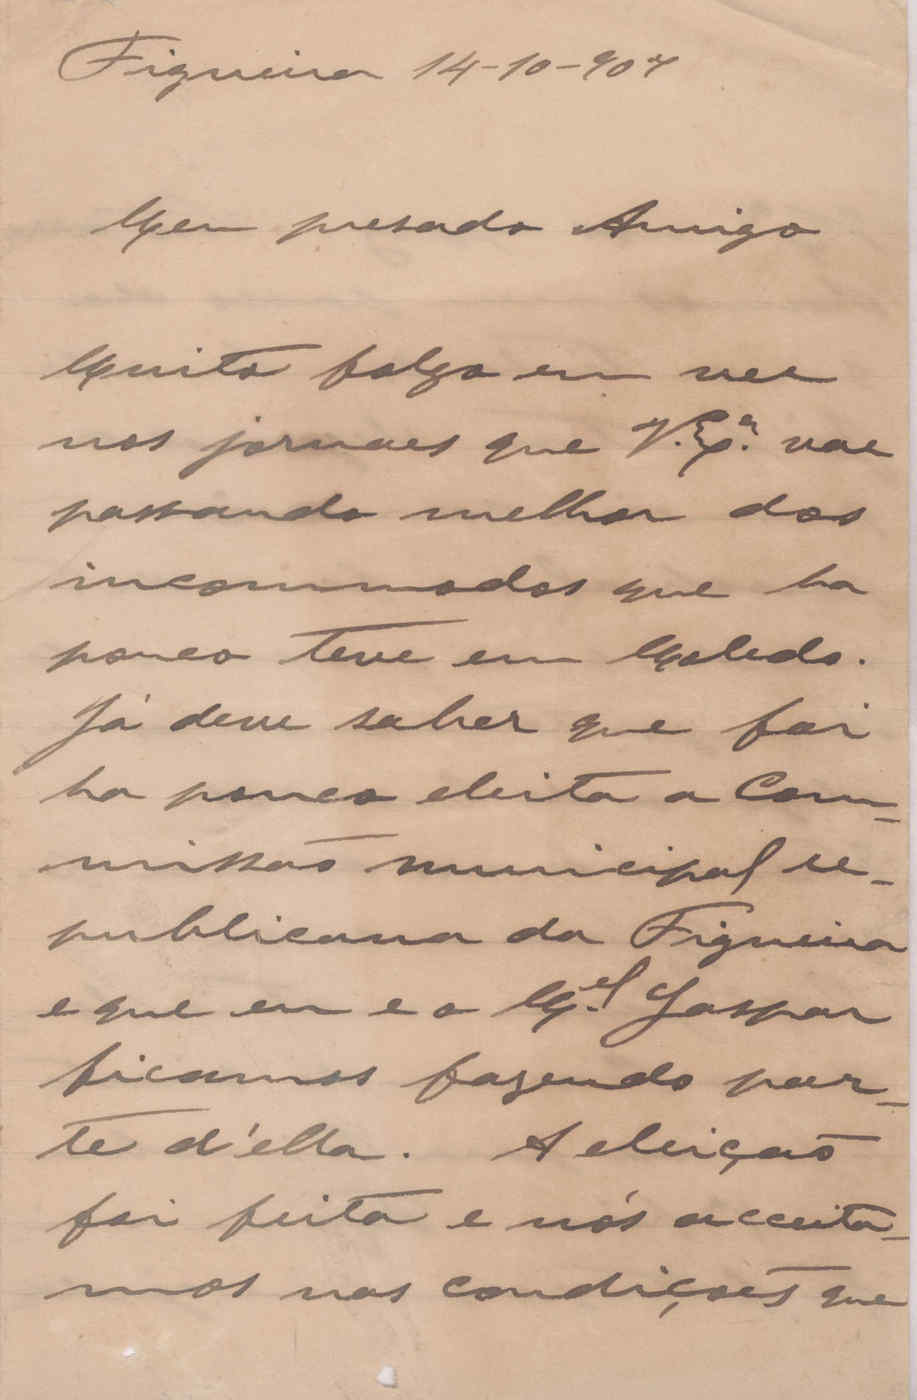 Figueira 14-10-907
Meu presado Amigo
Muito folgo em ver
nos jornaes que V. Exª. vae
passando melhor dos
incommodos que ha
pouco teve em Moledo.
Já deve saber que foi
ha pouco eleita a Com-
missão municipal re-
publicana da Figueira
e que eu e o Mel. Gaspar
ficamos fazendo par-
te d'ella. A eleição
foi feita e nós acceita-
mos nas condições que